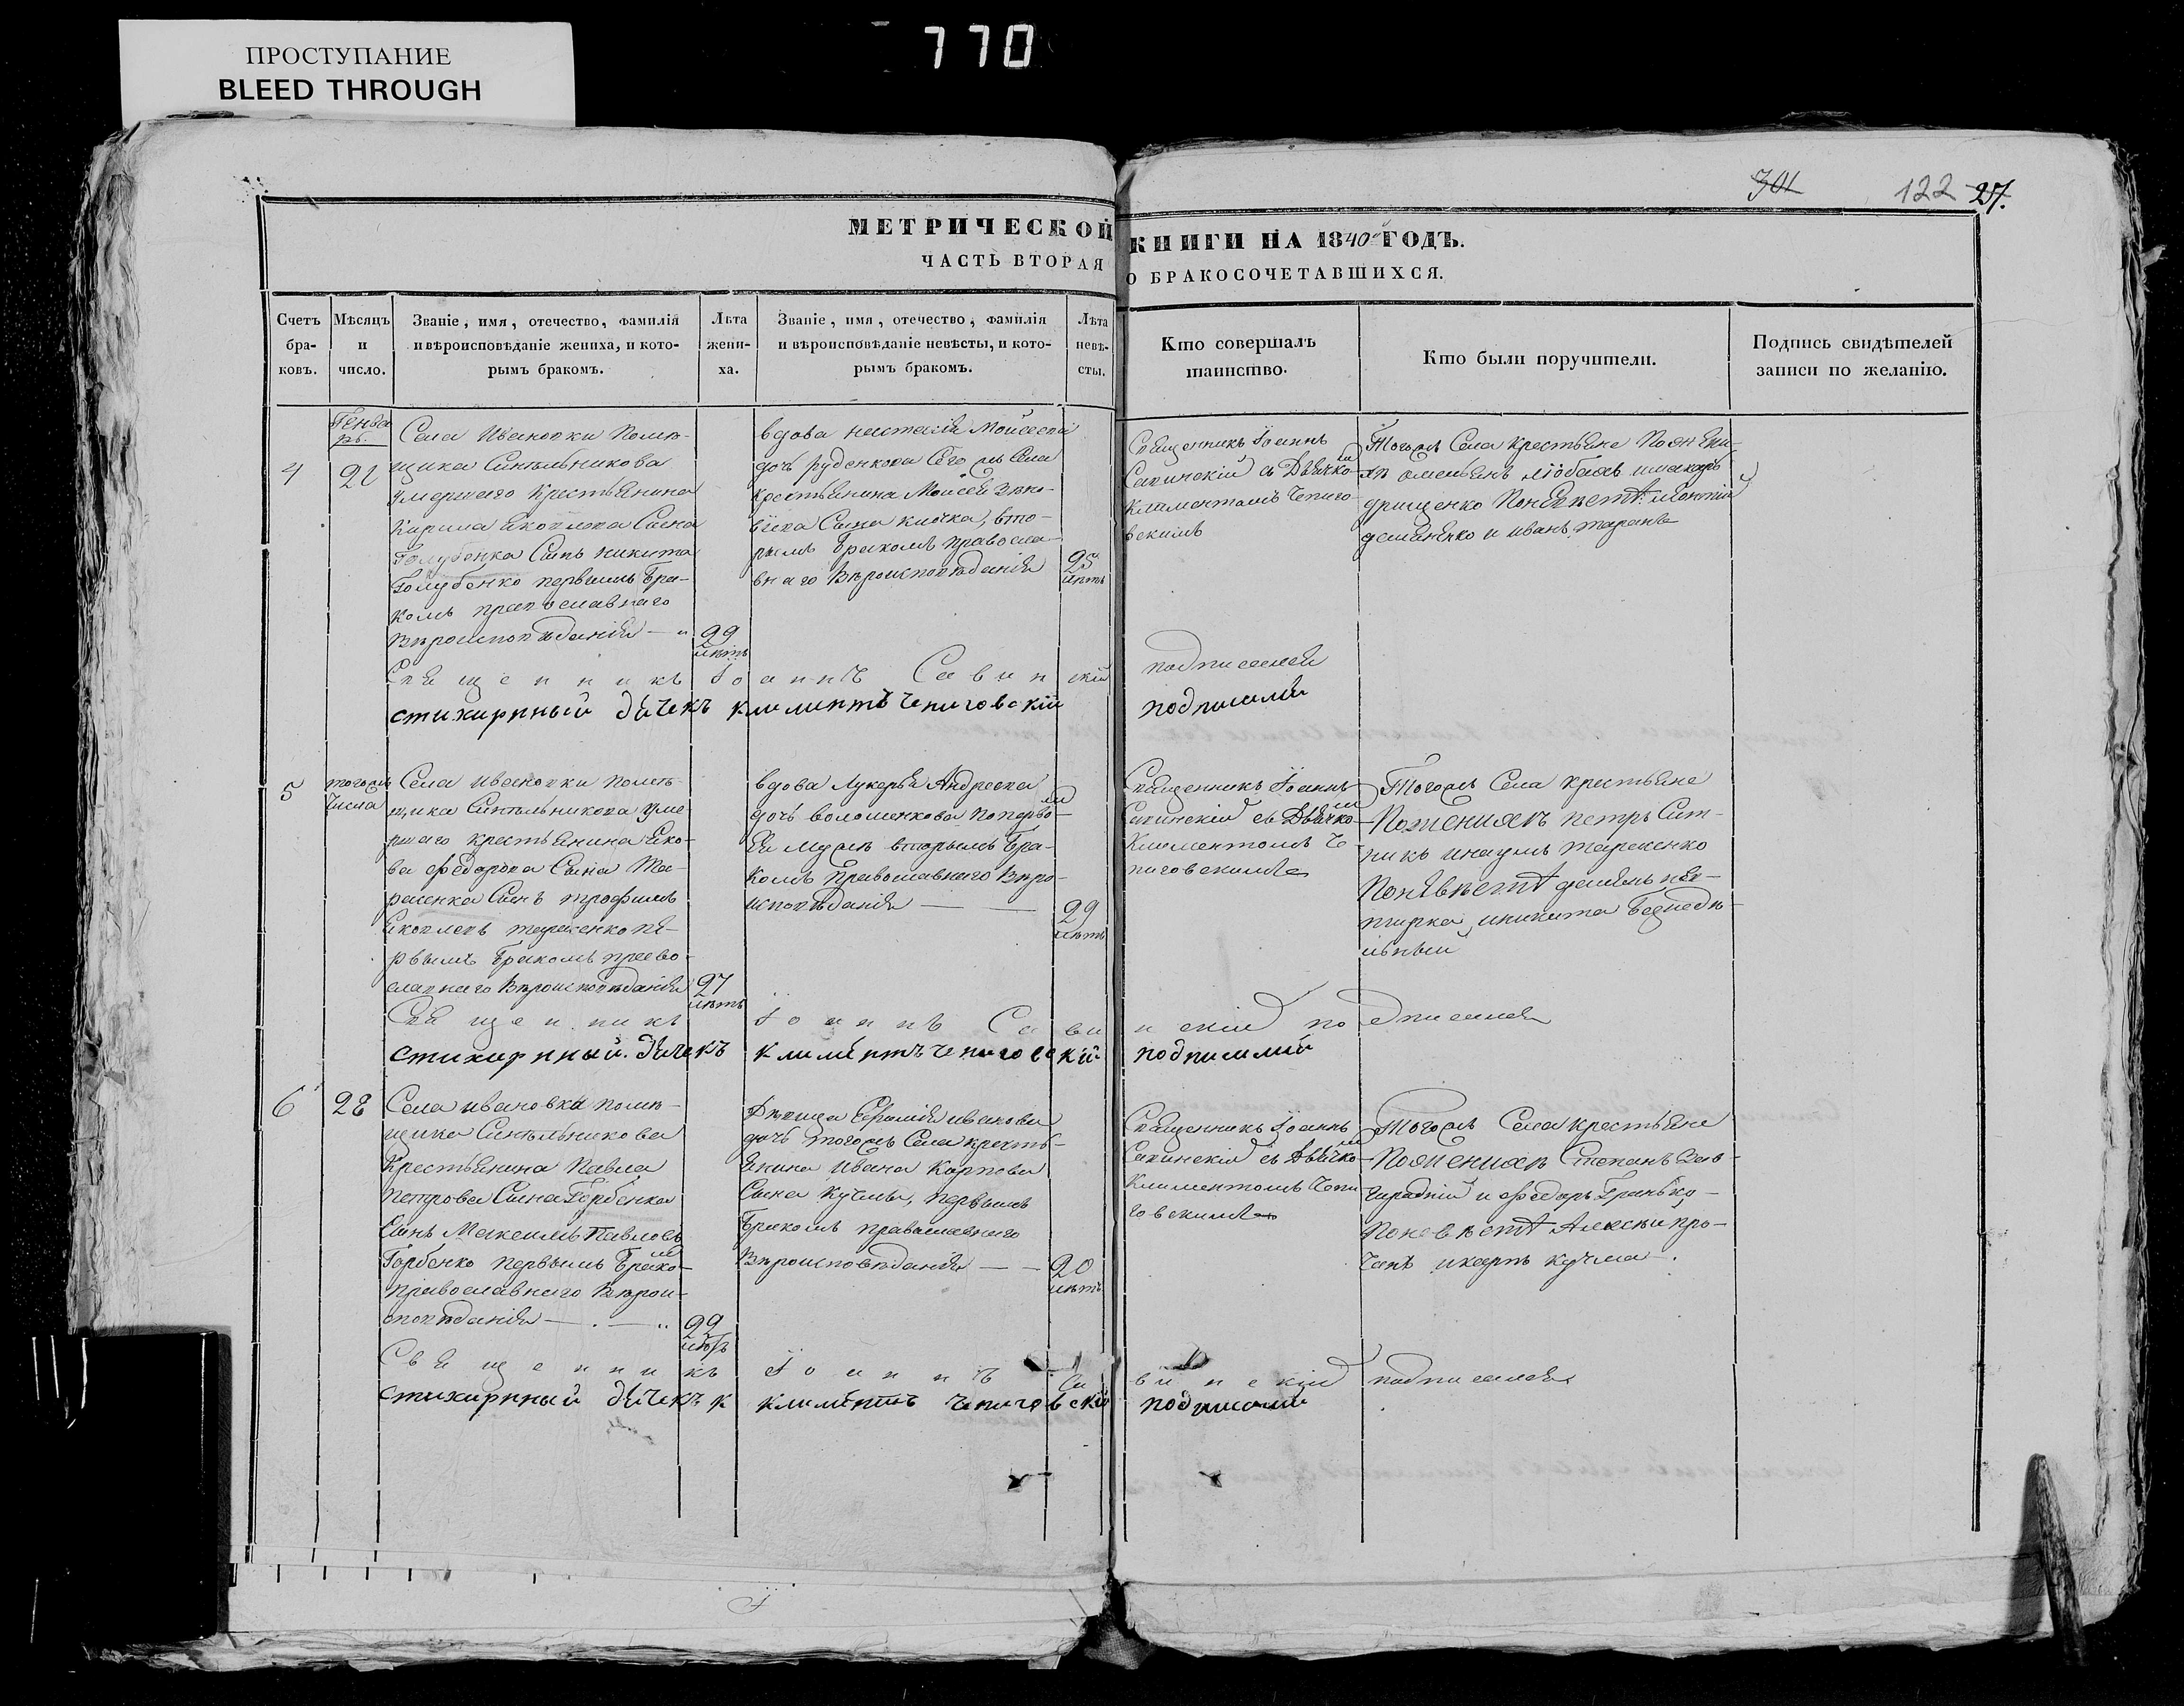 ПРОСТУПАНИЕ
BLEED THROUGH
770
301
122
27.
МЕТРИЧЕСКОЙ КНИГИ НА 1840й ГОДЪ.
ЧАСТЬ ВТОРАЯ О БРАКОСОЧЕТАВШИХСЯ.
Счетъ
бра-
ковъ.
Мѣсяцъ
и
число.
Званіе, имя, отечество, фамилія
и вѣроисповѣданіе жениха, и кото-
рымъ бракомъ.
Лѣта
жени-
ха.
Званіе, имя, отечество, фамилія
и вѣроисповѣданіе невѣсты, и кото-
рымъ бракомъ.
Лѣта
невѣ-
сты.
Кто совершалъ
таинство.
Кто были поручители.
Подпись свидѣтелей
записи по желанію.
4
Генва
рь.
21
Села Ивановки помѣ-
щика Синѣльникова
умершаго крестьянина
Кирила Яковлева Сына
Голубенка Сынъ никита
Голубенко первымъ бра-
комъ православнаго
вѣроисповѣданія
22
лѣтъ
вдова настасія Мойсеева
дочь руденкова Сего жъ Села
крестьянина Мойсея
Сына кислка, вто-
рымъ бракомъ правосла-
внаго вѣроисповѣданія
25
лѣтъ
Священникъ Іоаннъ
Савинскій съ Дьячко-мъ
Климентомъ Чепиго-
вскимъ
Тогожъ Села крестьяне По жени-
хѣ омельянъ
грищенко По невѣстѣ
демяненко и иванъ таранъ
Священникъ Іоаннъ Савинскій подписался
стихарный дячекъ климентъ чепиговскій подписалъ
5
тогожъ
числа
Села ивановки помѣ-
щика Синѣльникова уме-
ршаго крестьянина Яко-
ва федорова Сына Та-
расенка Сынъ трофимъ
Яковлевъ тарасенко пе-
рвымъ бракомъ право-
славнаго вѣроисповѣданія
27
лѣтъ
вдова Лукерья Андреева
дочь волошенкова по перво-мъ
ея мужѣ вторымъ бра-
комъ православнаго вѣро-
исповѣданія
29
лѣтъ
Священникъ Іоаннъ
Савинскій съ Дьячко-мъ
Климентомъ Че-
пиговскимъ
Тогожъ Села крестьяне
По женихѣ петръ Сит-
никъ инаумъ тарасенко
По невѣстѣ демянъ
никита
Священникъ Іоаннъ Савинскій подписался
стихарный дячекъ климентъ чепиговскій подписалъ
6
28
Села ивановки помѣ-
щика Синѣльникова
Крестьянина Павла
петрова Сына Горбенка
Сынъ Максимъ Павловъ
Горбенко первымъ брако-мъ
православнаго вѣрои-
сповѣданія
22
года
дѣвица Ефимія иванова
дочь тогожъ Села кресть-
янина ивана Карпова
Сына Кучмы, первымъ
бракомъ православнаго
вѣроисповѣданія
20
лѣтъ
Священникъ Іоаннъ
Савинскій съ Дьячко-мъ
Климентомъ Чепи-
говскимъ
Тогожъ Села крестьяне
По женихѣ Степанъ
и федоръ Гринько
По невѣстѣ Алексѣи про-
икарпъ кучма.
Священникъ Іоаннъ Савинскій подписался
стихарный дячекъ к климентъ чепиговскій подписалъ